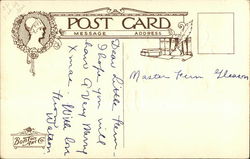 POST CARD
MESSAGE
ADDRESS
Dear Little Fern-
I hope you will
have a Very Merry
Xmas. With love
Master Fern Gleason